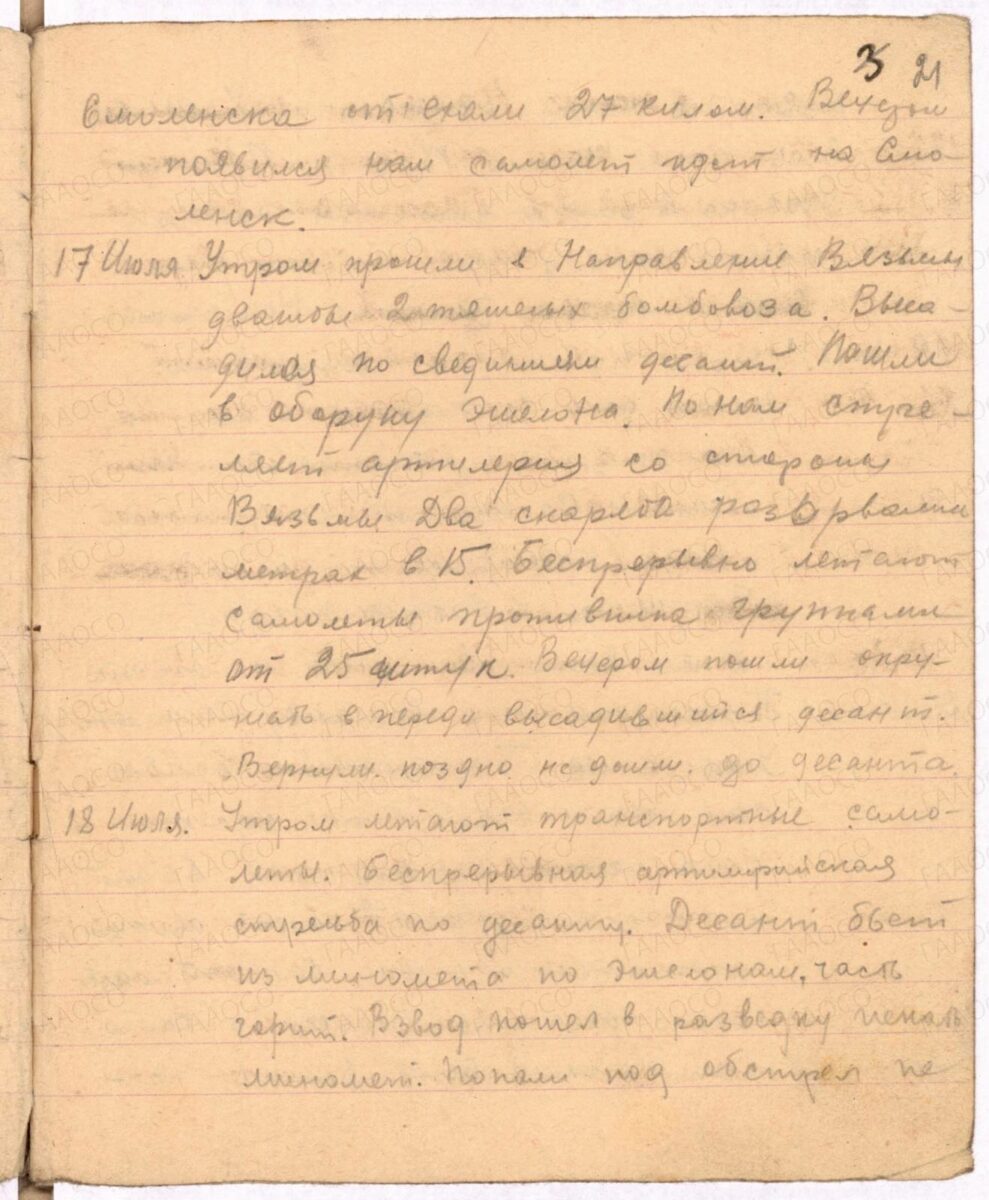 3 21
Смоленска отъехали 27 килом. Вечером
появился нам самолет идет на Смо-
ленск.
17 Июля Утром прошли в Направление Вязьмы
дважды 2 тяжелых бомбовоза. Выса-
дился по сведениям десант. Пошли
в оборуну эшелона. По нам стуче-
ляет артилерия со стороны
Вязьмы Два снаряда разорвались
метрах в 15. Беспрерывно летают
самолеты противника групками
от 25 штук. Вечером пошли окру-
жать в переди высадившийся десант.
Вернули поздно не дошли до десанта.
18 Июля. Утром летают транспортные само-
леты. Беспрерывная артилерийская
стрельба по десанту. Десант бьет
из миномета по эшелонам, часть
горит. Взвод пошел в разведку искать
миномет. Попали под обстрел пе